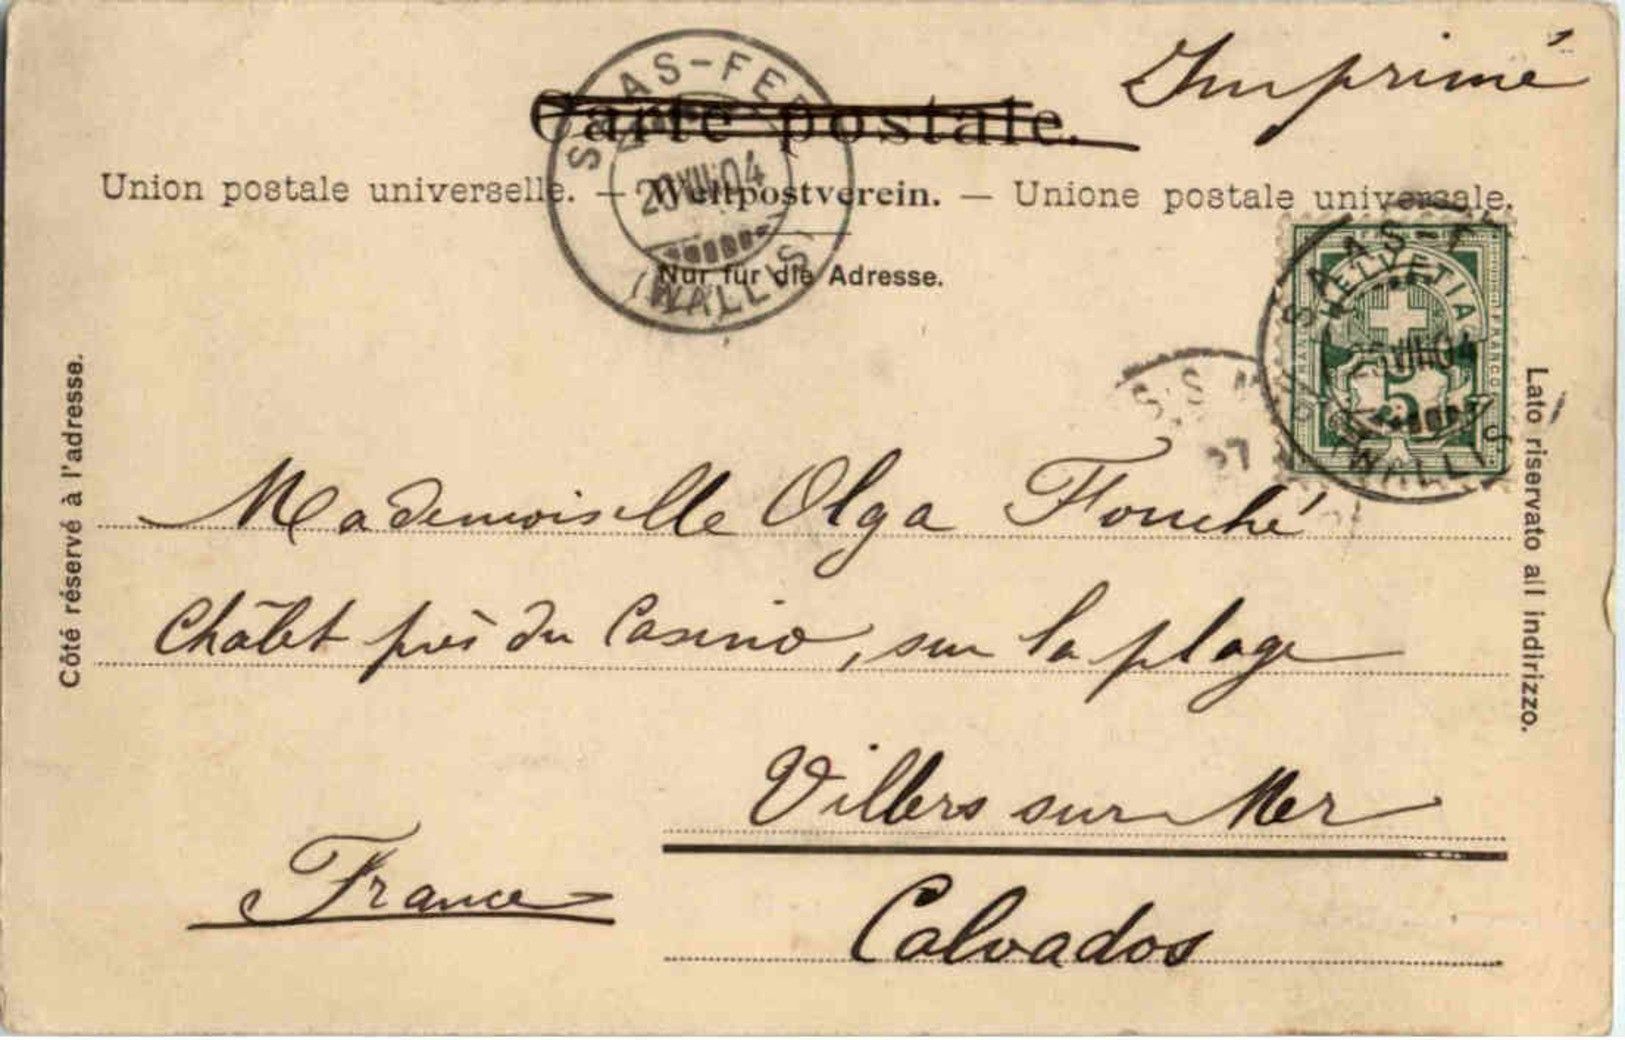 Imprimé
Carte postale.
Union postale universelle. — Weltpostverein. — Unione postale universale.
Nur für die Adresse.
SAAS-FEE
20 VIII 04
(WALLIS)
SAAS-F
VIII 04
(WALLIS)
HELVETIA
FRANCO
5
Côté réservé à l'adresse.
Lato riservato all indirizzo.
Mademoiselle Olga Fouché
Châlet près du Casino, sur la plage
Villers sur Mer
France
Calvados